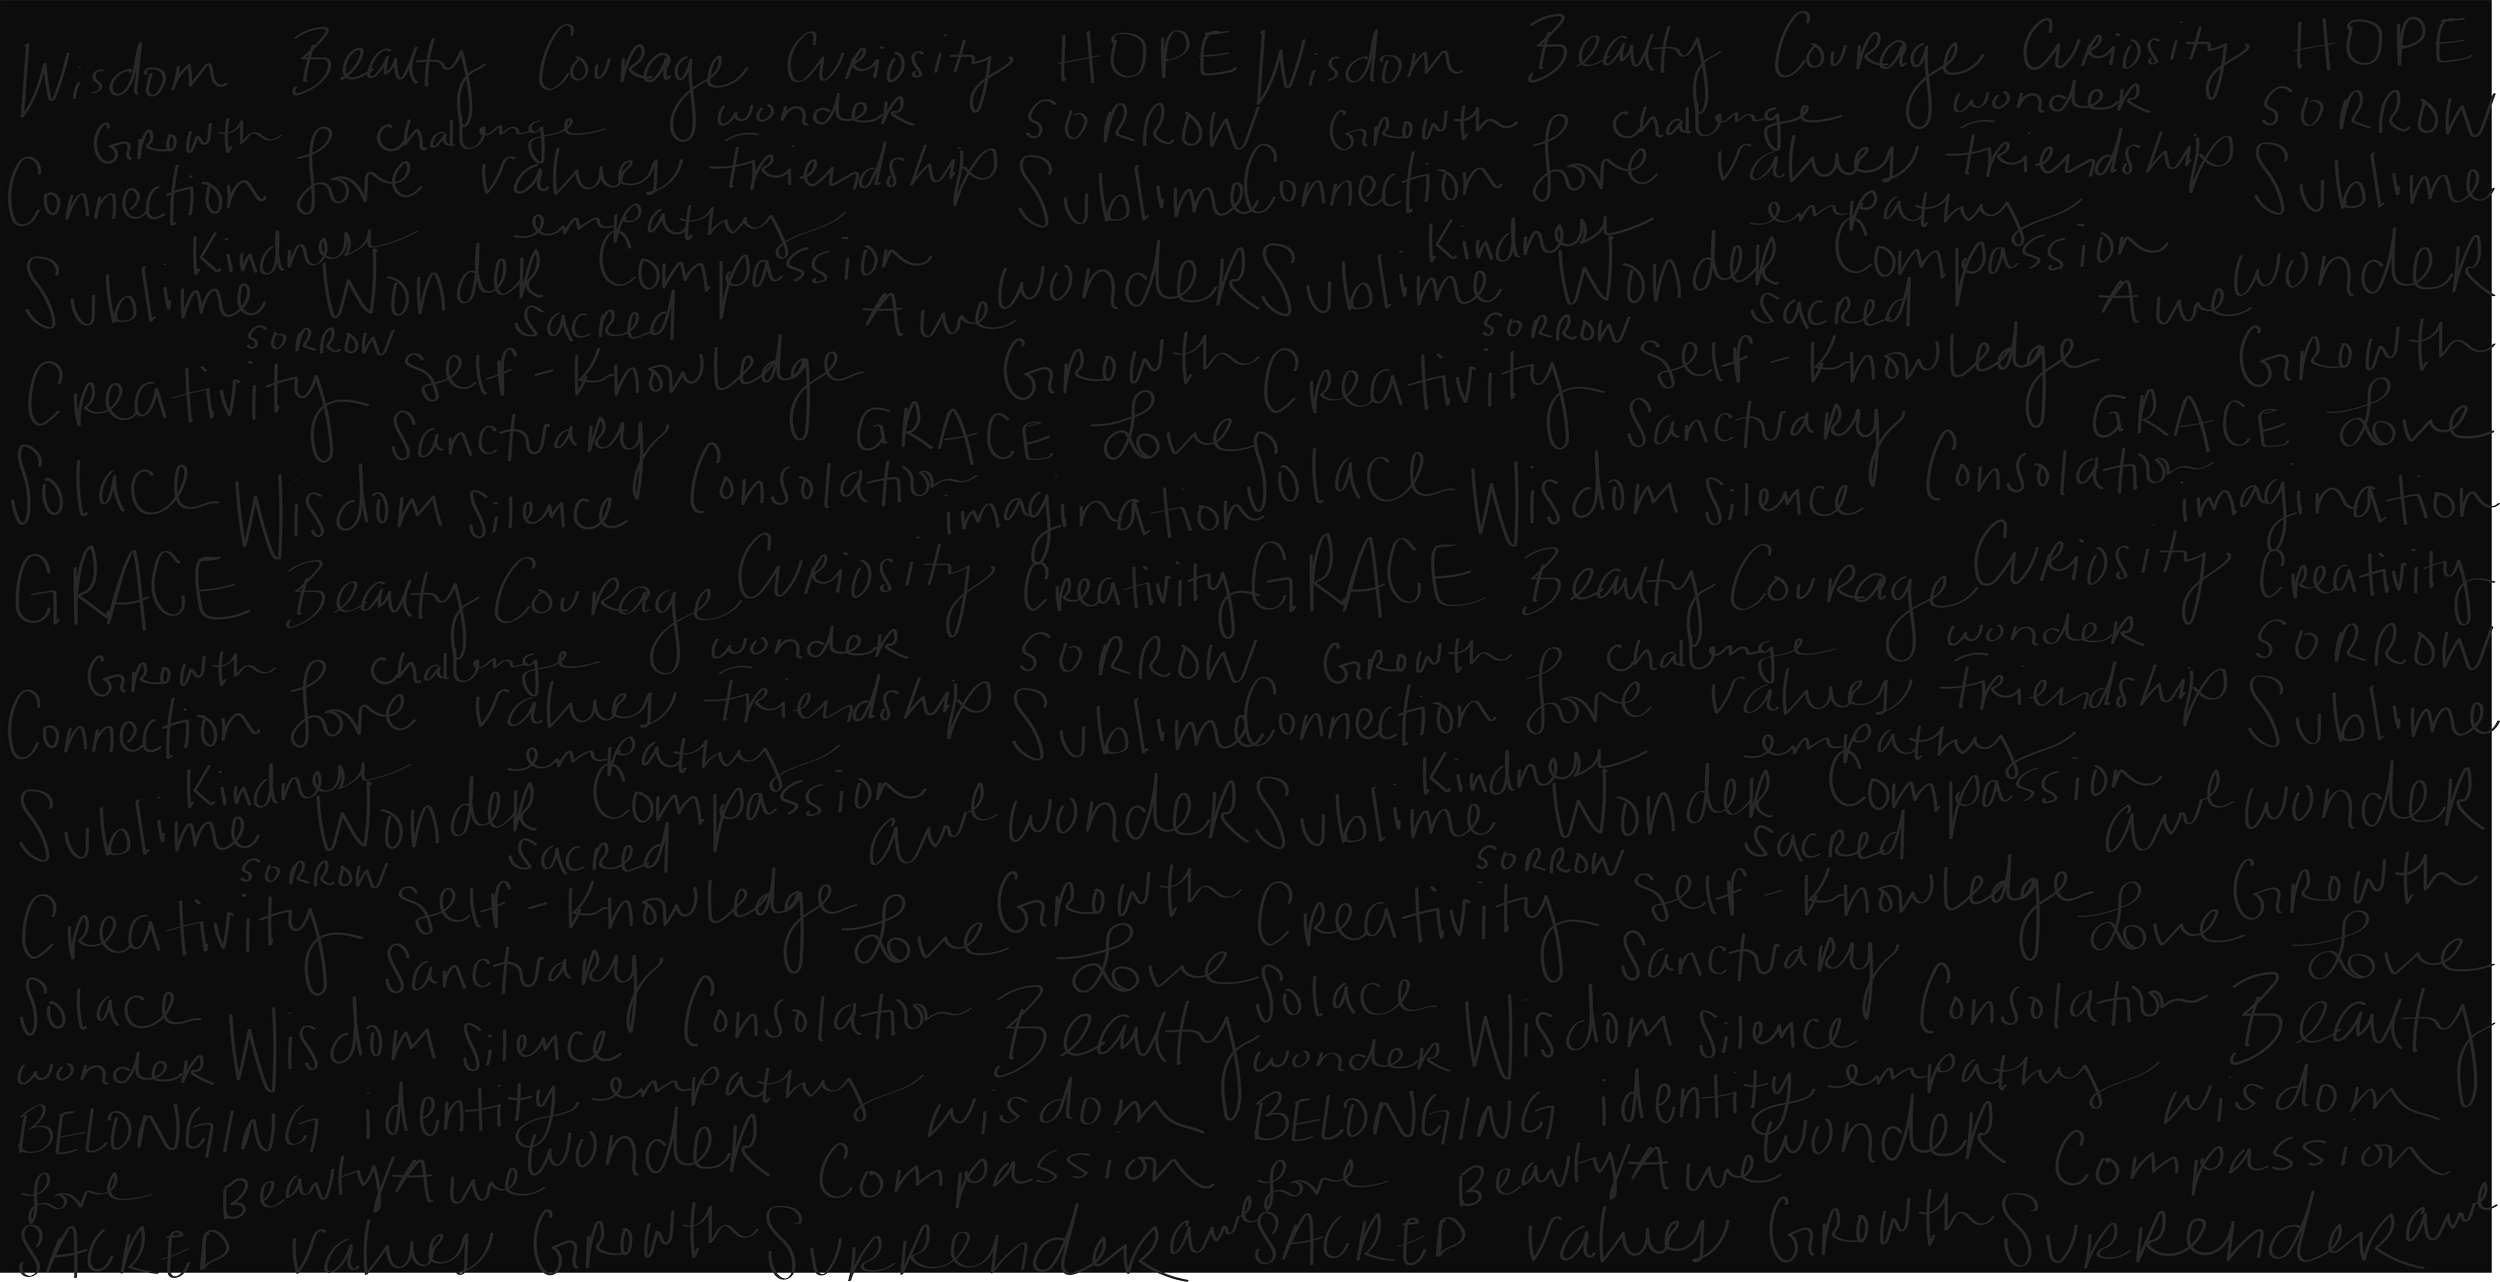 Wisdom Beauty Courage Curiosity HOPE Wisdom Beauty Courage Curiosity HOPE
Growth challenge wonder SORROW Growth challenge wonder SORROW
Connection love values friendship Sublime Connection love values friendship Sublime
Kindness empathy Kindness empathy
Sublime Wonder Compassion Awe wonder Sublime Wonder Compassion Awe wonder
SORROW sacred SORROW sacred
Creativity self-knowledge Growth Creativity self-knowledge Growth
Sanctuary GRACE love Sanctuary GRACE love
Solace Wisdom silence Consolation imagination Solace Wisdom silence Consolation imagination
GRACE Beauty Courage Curiosity Creativity GRACE Beauty Courage Curiosity Creativity
Growth challenge wonder SORROW Growth challenge wonder SORROW
Connection love values friendship Sublime Connection love values friendship Sublime
Kindness empathy Kindness empathy
Sublime Wonder Compassion awe wonder Sublime Wonder Compassion awe wonder
SORROW sacred SORROW sacred
Creativity self-knowledge love Growth Creativity self-knowledge love Growth
Sanctuary love Sanctuary love
Solace Wisdom silence Consolation Beauty Solace Wisdom silence Consolation Beauty
wonder wonder
BELONGING identity empathy wisdom BELONGING identity empathy wisdom
love Beauty Awe wonder Compassion love Beauty Awe wonder Compassion
SACRED values Growth Surrender awe SACRED values Growth Surrender awe